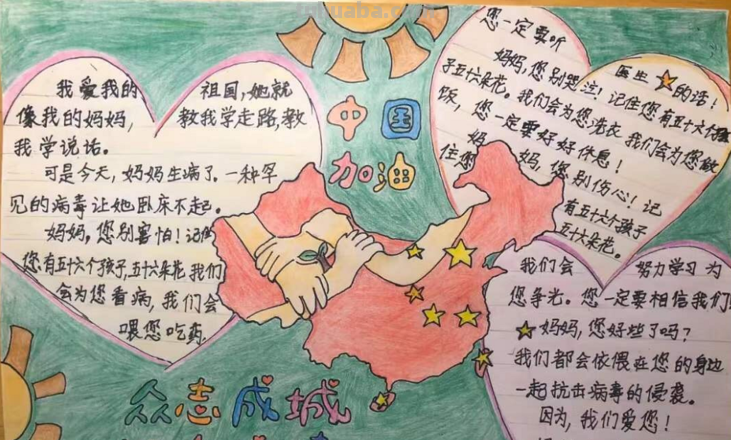 我爱我的祖国,她就
像我的妈妈,教我学走路,教
我学说话。
可是今天,妈妈生病了。一种罕
见的病毒让她卧床不起。
妈妈,您别害怕!记住
您有五十六个孩子,五十六朵花,我们
会为您看病,我们会
喂您吃药
中国
加油
您一定要听医生的话!
妈妈,您别哭泣!记住您有五十六个孩
子五十六朵花。我们会为您洗衣 我们会为您做
饭,您一定要好好休息!
妈妈,您别伤心!记
住您有五十六个孩子
五十六朵花。
我们会努力学习 为
您争光。您一定要相信我们!
妈妈,您好些了吗?
我们都会依偎在您的身边
一起抗击病毒的侵袭。
因为,我们爱您!
众志成城